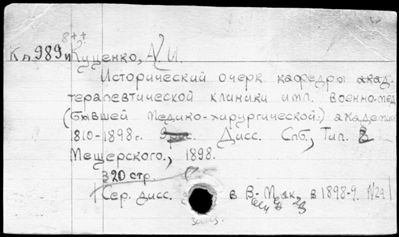 8++
Кп 989 и Куценко, А. И.
Исторический очерк кафедры акад.
терапевтической клиники имп. Военно-мед
(бывшей Медико-хирургической) академии
1810-1898 г. Дисс. Спб., Тип.
Мещерского, 1898.
320 стр.
(Сер. дисс. в В- Ак. в 1898-9. №29)